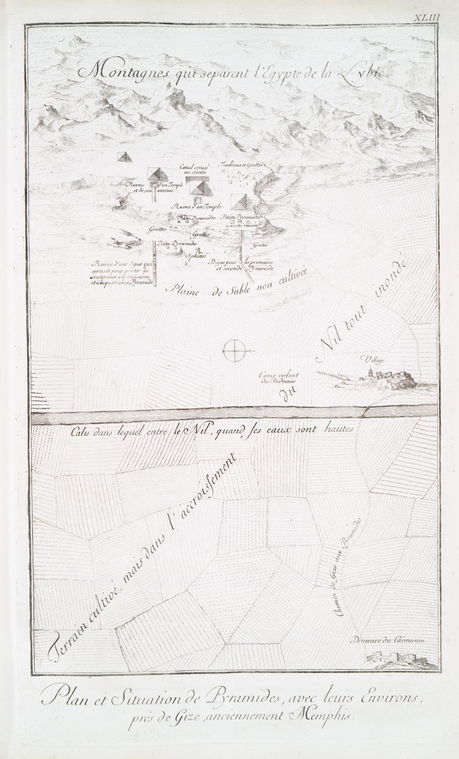 XLIII
Montagnes qui separent l'Egypte de la Lybie.
Canal creusé
au ciseau
Tombeaux et Grottes
Ruines d'un Temple
et de son avenuë
Ruines d'un Temple
Petites Pyramides
Petites Pyramides
Grottes
Grottes
Grotte
Petite Pyramide
Sphinx
Digue pour la premiere
et seconde Pyramide
Ruines d'une digue qui
servoit pour porter les
materiaux à la troisieme
et à la quatrieme Pyramide
Plaine de Sable non cultivée
Village
Camp volant
de Bedouins
Calis dans lequel entre le Nil, quand ses eaux sont hautes
Terrain cultivé, mais dans l'accroissement
du Nil tout inondé
Chemin de Gize aux Pyramides
Demeure du Caimacan
Plan et Situation de Pyramides, avec leurs Environs,
pres de Gize, anciennement Memphis.